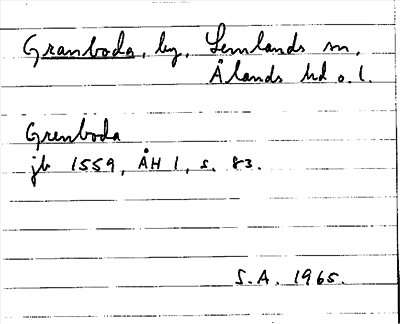 Granboda, by, Lemlands sn,
Ålands hd o. l.
Grenboda
jb 1559, ÅH 1, s. 83.
S.A. 1965.